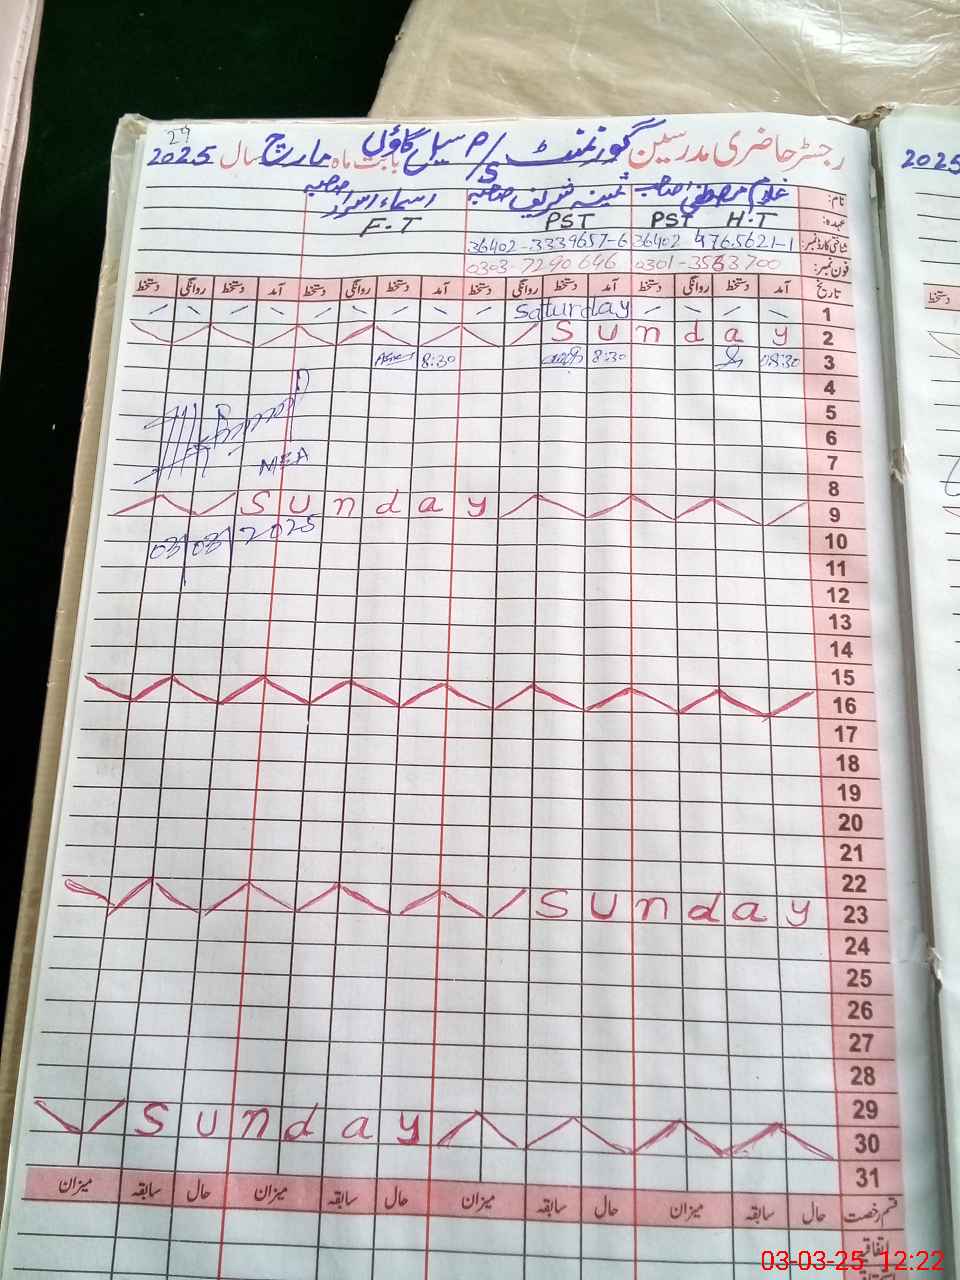 29
رجسٹر حاضری مدرسین گورنمنٹ P/S سیال گاؤں بابت ماہ مارچ سال 2025
2025
نام: غلام مصطفیٰ صاحب ثمینہ شریف صاحبہ اسماء صاحبہ
عہدہ: H.T PST PST F.T
شناختی کارڈ نمبر: 36402-4765621-1 36402-3339657-6
فون نمبر: 0301-3563700 0303-7290646
تاریخ آمد دستخط روانگی دستخط آمد دستخط روانگی دستخط آمد دستخط روانگی دستخط آمد دستخط روانگی دستخط
دستخط
1 Saturday
2 Sunday
3 08:30 8:30 8:30
4
5
6
7
MEA
8
9 Sunday
03/03/2025
10
11
12
13
14
15
16
17
18
19
20
21
22
23 Sunday
24
25
26
27
28
29
30 Sunday
31
قسم رخصت حال سابقہ میزان حال سابقہ میزان حال سابقہ میزان حال سابقہ میزان
اتفاقیہ
03-03-25 12:22